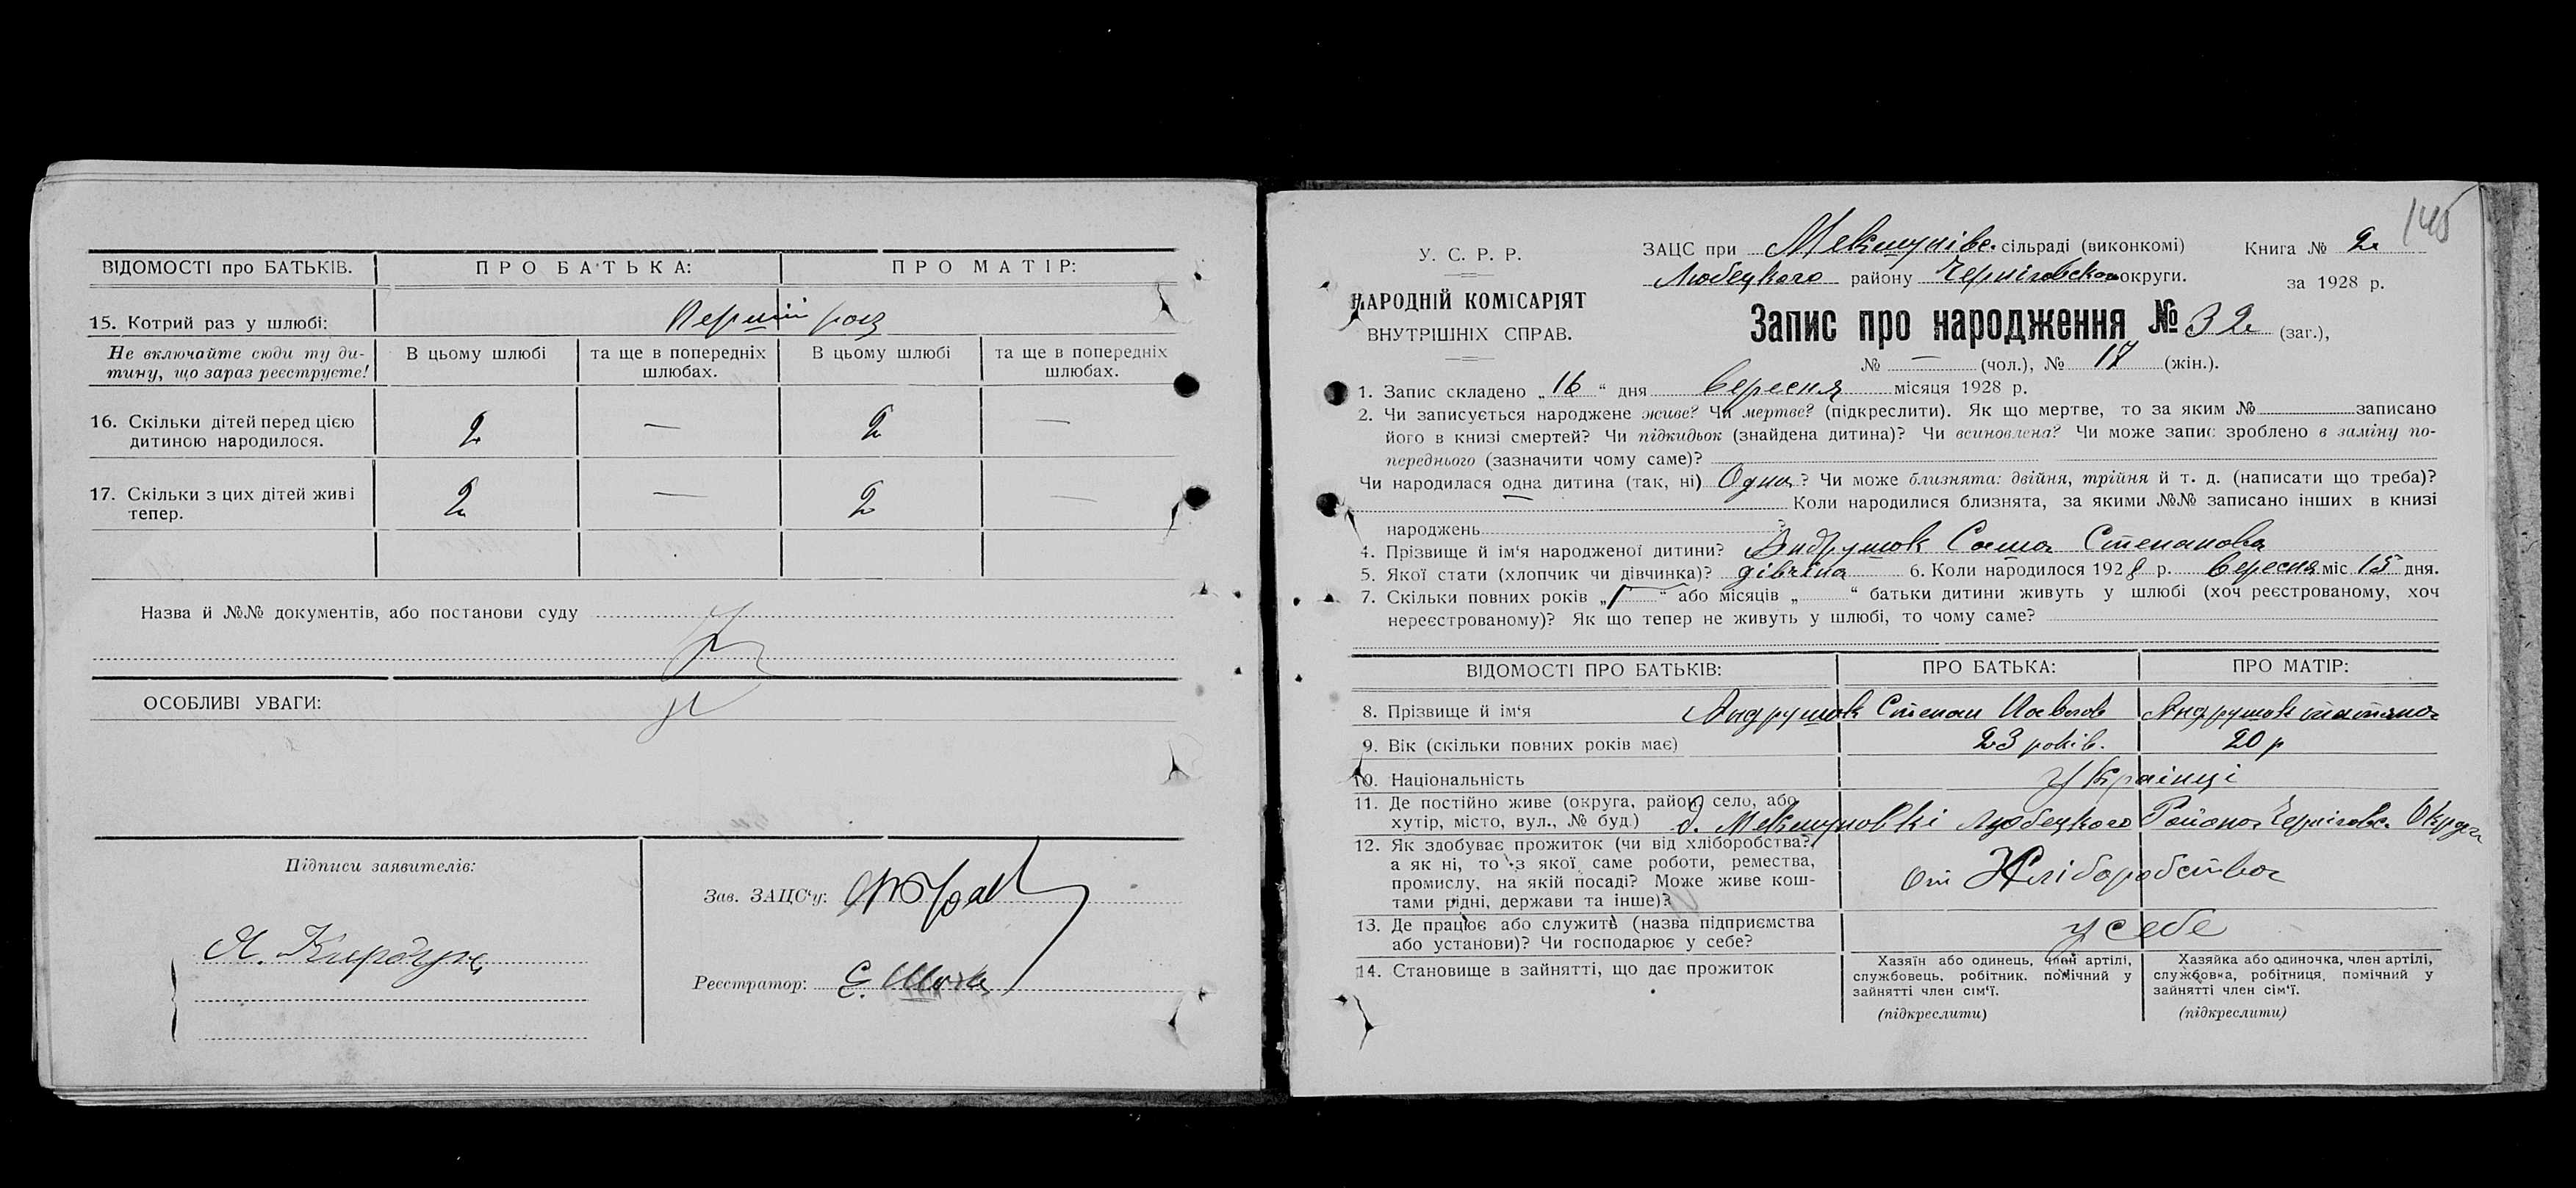 ВІДОМОСТІ про БАТЬКІВ. ПРО БАТЬКА: ПРО МАТІР:
15. Котрий раз у шлюбі: Перший раз
Не включайте сюди ту ди-
тину, що зараз реєструєте!
В цьому шлюбі
та ще в попередніх
шлюбах.
В цьому шлюбі
та ще в попередніх
шлюбах.
16. Скільки дітей перед цією
дитиною народилося.
2 — 2 —
17. Скільки з цих дітей живі
тепер.
2 — 2 —
Назва й №№ документів, або постанови суду
ОСОБЛИВІ УВАГИ:
Підписи заявителів:
Зав. ЗАЦС'у:
Реєстратор: Є.
145
У. С. Р. Р.
НАРОДНІЙ КОМІСАРІЯТ
ВНУТРІШНІХ СПРАВ.
ЗАЦС при сільраді (виконкомі) Книга № 2
Любецкого району Чернігівской округи. за 1928 р.
Запис про народження № 32 (заг.),
№ — (чол.), № 17 (жін.).
1. Запис складено „16“ дня вересня місяця 1928 р.
2. Чи записується народжене живе? Чи мертве? (підкреслити). Як що мертве, то за яким № записано
його в книзі смертей? Чи підкидьок (знайдена дитина)? Чи всиновлена? Чи може запис зроблено в заміну по-
переднього (зазначити чому саме)?
Чи народилася одна дитина (так, ні) Одна? Чи може близнята: двійня, трійня й т. д. (написати що треба)?
Коли народилися близнята, за якими №№ записано інших в книзі
народжень ?
4. Прізвище й ім'я народженої дитини? Андрушок Саша Степанова
5. Якої стати (хлопчик чи дівчинка)? дівчіна 6. Коли народилося 1928 р. вересня міс 15 дня.
7. Скільки повних років „ “ або місяців „ “ батьки дитини живуть у шлюбі (хоч реєстрованому, хоч
нереєстрованому)? Як що тепер не живуть у шлюбі, то чому саме?
ВІДОМОСТІ ПРО БАТЬКІВ: ПРО БАТЬКА: ПРО МАТІР:
8. Прізвище й ім'я Андрушок Степан Андрушок татяна
9. Вік (скільки повних років має) 23 років. 20 р
10. Національність Українці
11. Де постійно живе (округа, район, село, або
хутір, місто, вул., № буд.) Любецкого Района Черніговс. Округи
12. Як здобуває прожиток (чи від хліборобства?
а як ні, то з якої саме роботи, ремества,
промислу, на якій посаді? Може живе кош-
тами рідні, держави та інше)?
От Хліборобства
13. Де працює або служить (назва підприємства
або установи)? Чи господарює у себе?
у себе
14. Становище в зайнятті, що дає прожиток
Хазяїн або одинець, член артілі,
службовець, робітник, помічний у
зайнятті член сім'ї.
(підкреслити)
Хазяйка або одиночка, член артілі,
службовка, робітниця, помічний у
зайнятті член сім'ї.
(підкреслити)